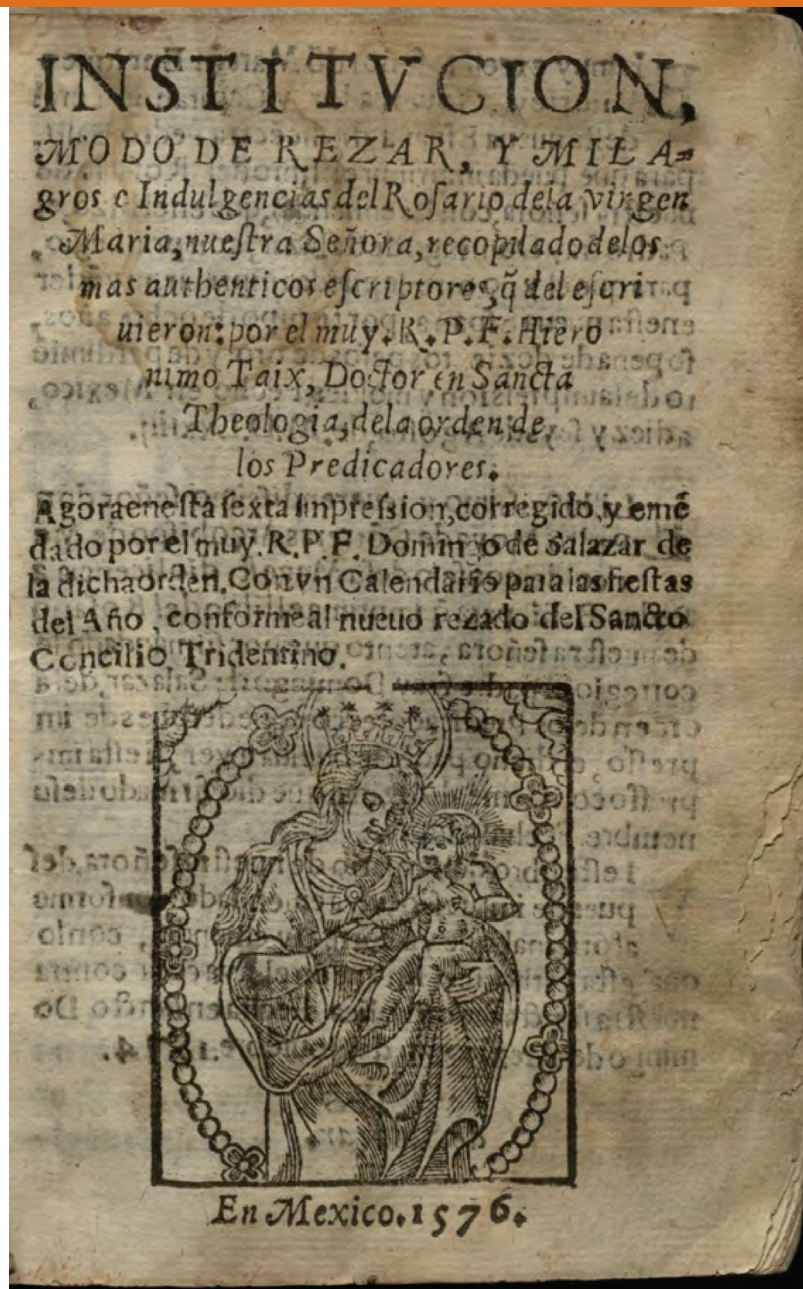 INSTITVCION,
MODO DE REZAR, Y MILA-
gros e Indulgencias del Rosario dela virgen
Maria, nueſtra Señora, recopilado delos
mas authenticos eſcriptores, q̃ del eſcri
uieron: por el muy. R. P. F. Hiero
nimo Taix, Doctor en Sancta
Theologia, dela orden de
los Predicadores.
Agora en eſta ſexta impreſsion, corregido, y emẽ
dado por el muy. R. P. F. Domingo de Salazar de
la dicha orden. Con vn Calendario para las fieſtas
del Año, conforme al nueuo rezado del Sancto
Concilio Tridentino.
En Mexico. 1576.